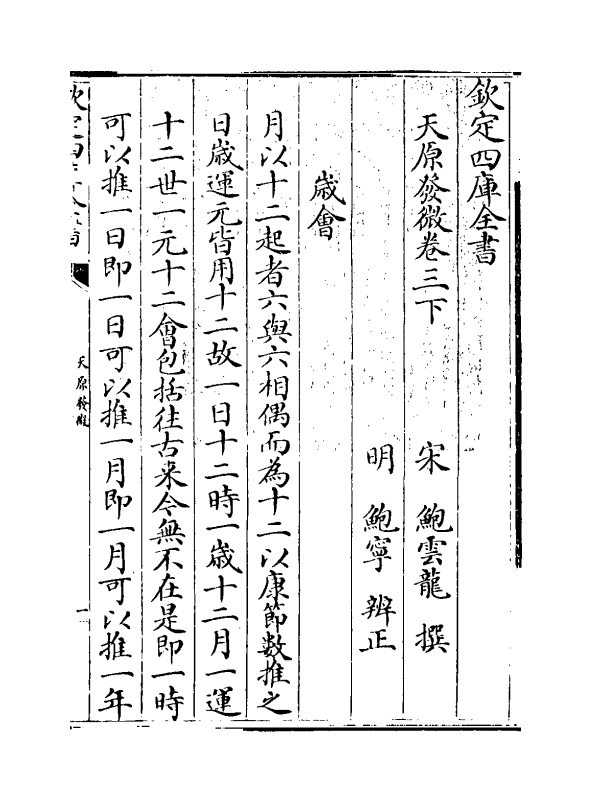 欽定四庫全書
天原發微卷三下
宋 鮑雲龍 撰
明 鮑寧 辨正
歲會
月以十二起者六與六相偶而為十二以康節數推之
日歲運元皆用十二故一日十二時一歲十二月一運
十二世一元十二會包括往古来今無不在是即一時
可以推一日即一日可以推一月即一月可以推一年
天原發微
一